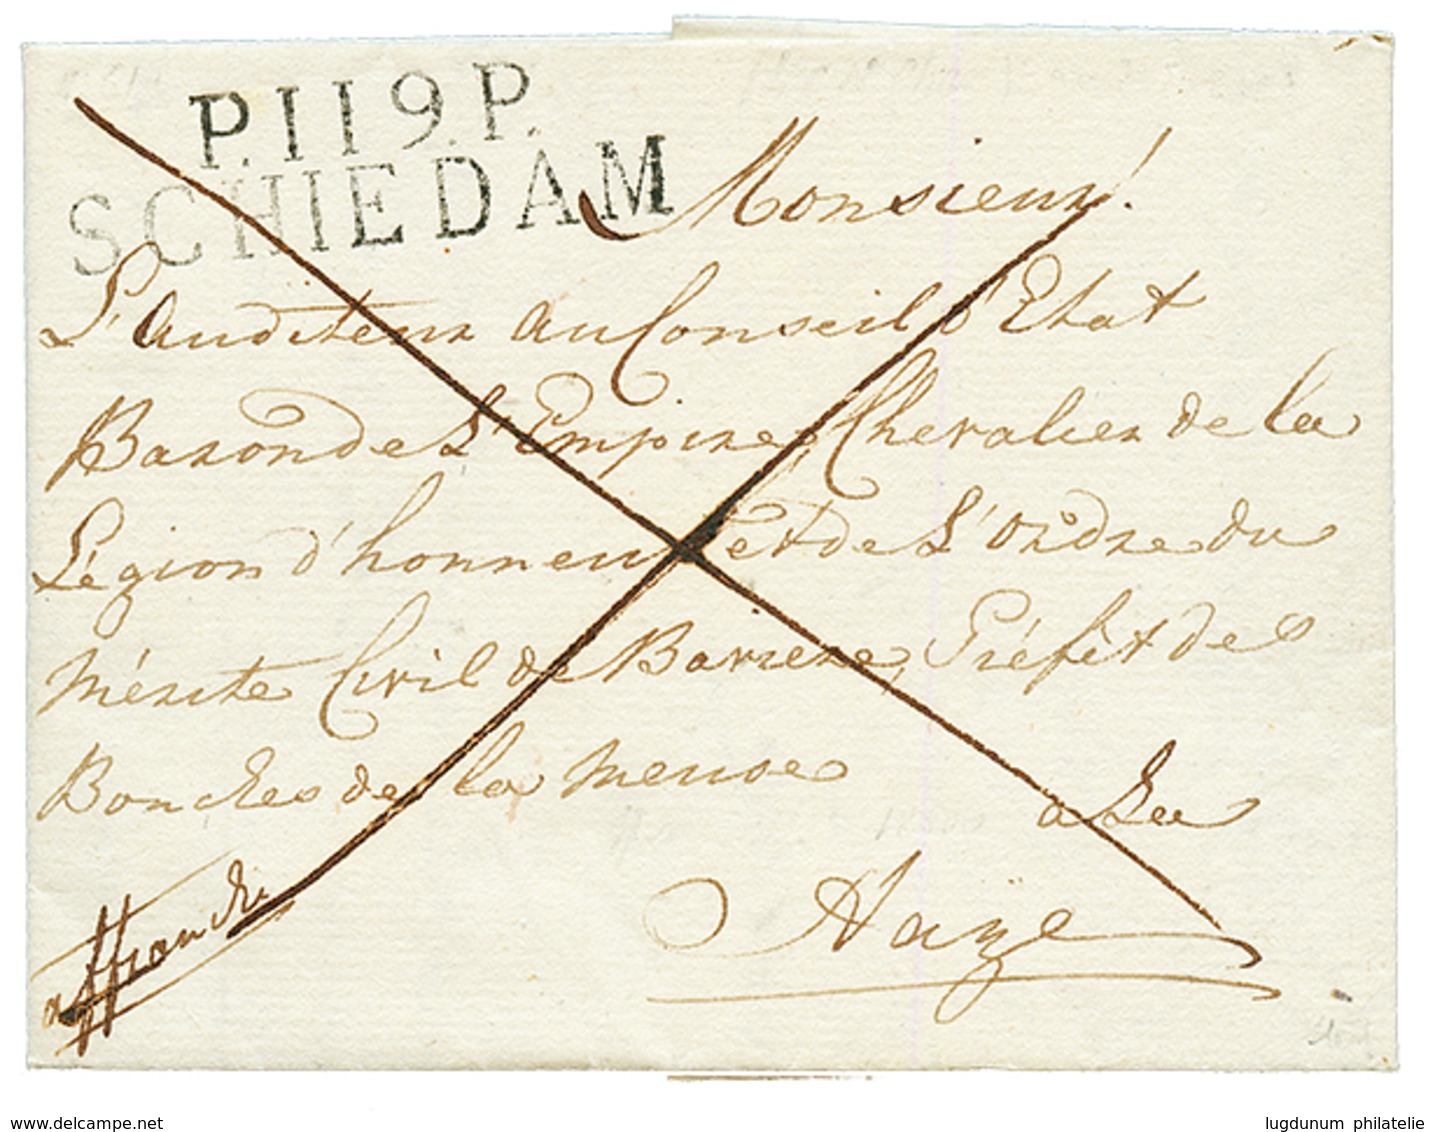 P.119.P.
SCHIEDAM
Monsieur!
L'Auditeur au Conseil d'Etat
Baron de L'Empire, Chevalier de la
Légion d'honneur et de L'ordre du
Mérite Civil de Baviere, Préfêt des
Bouches de la Meuse
a La
Haÿe
affranchie
delcampe.net
lugdunum philatelie